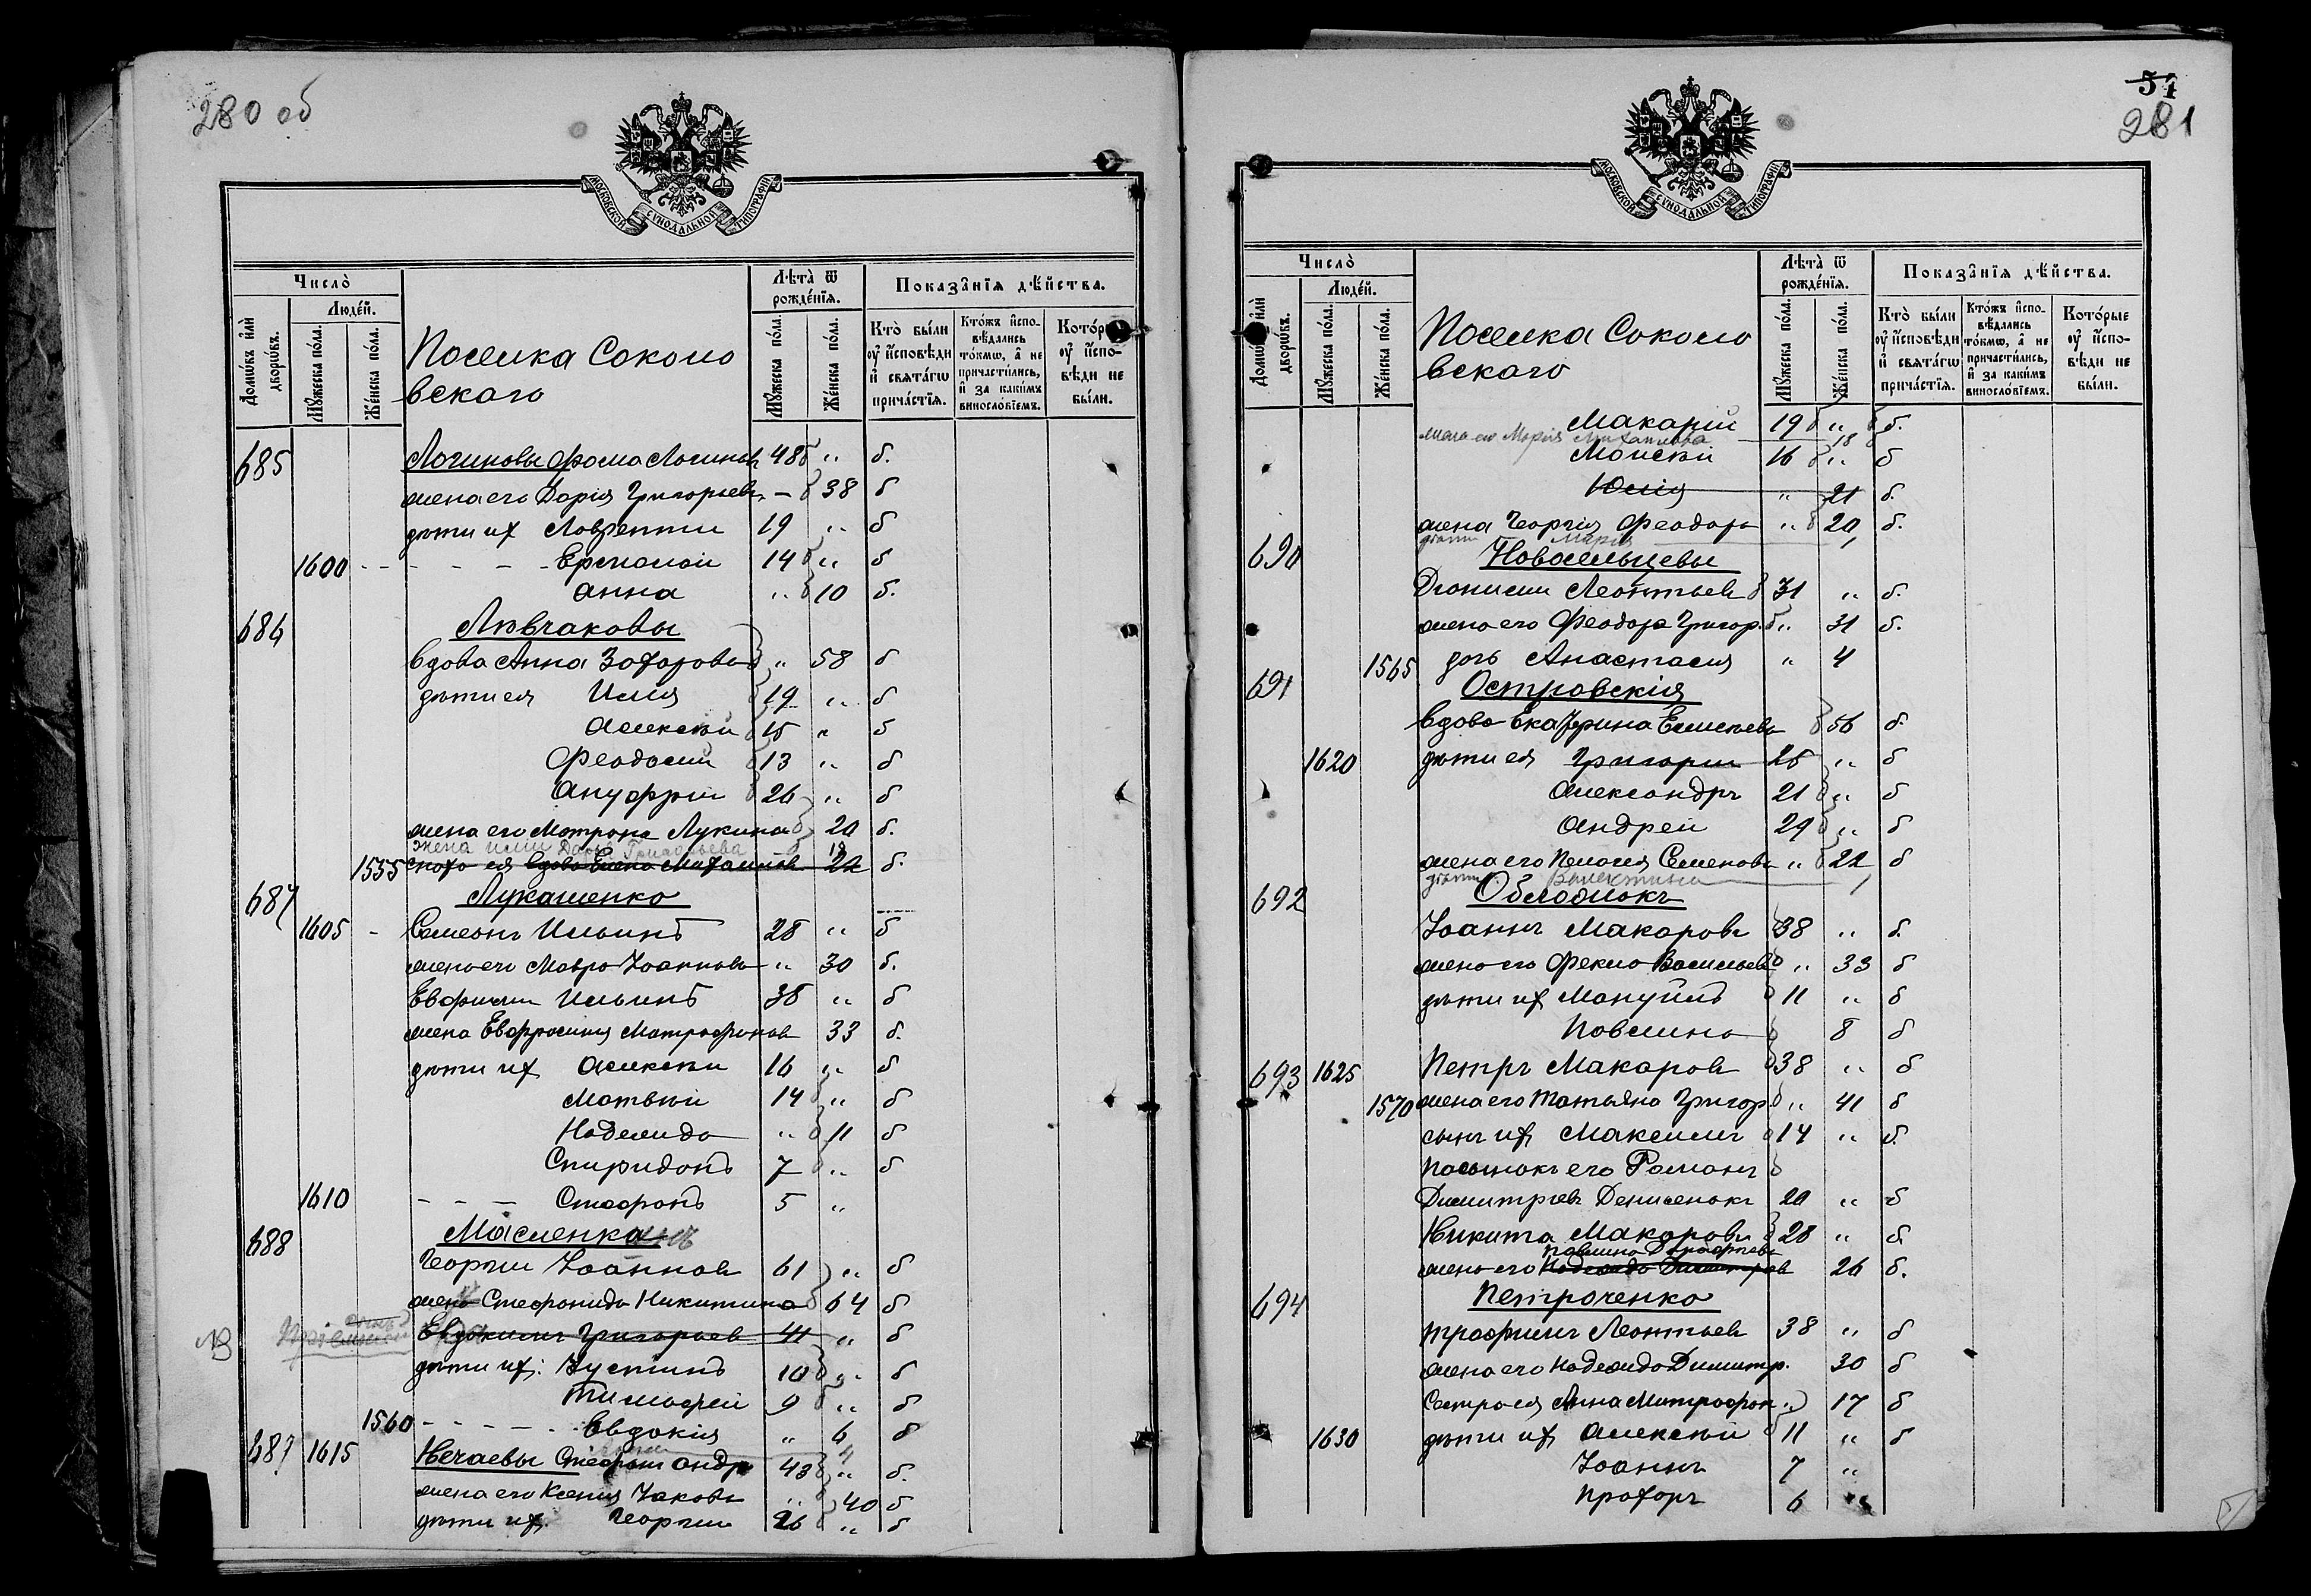 280 об
МОСКОВСКОЙ СѴНОДАЛЬНОЙ ТИПОГРАФІИ
Число̀
Люде́й.
Домѡ́въ и҆лѝ дворѡ́въ.
Мꙋ́жеска по́ла.
Же́нска по́ла.
Поселка Соколо
вскаго
Лѣта̀ ѿ рожде́нїѧ.
Мꙋ́жеска по́ла.
Же́нска по́ла.
Показа̑нїѧ дѣ́йства.
Кто̀ бы́ли
оу҆ и҆сповѣди
и҆ свѧта́гѡ
прича́стїѧ.
Кто́жъ и҆спо-
вѣдались
то́кмѡ, а҆ не
причасти́лись,
и҆ за каки́мъ
винослові́емъ.
Кото́рые
оу҆ и҆спо-
вѣди не
бы́ли.
685 Логиновы Фома Логинов 48 б „ б.
жена его Дарія Григорьев. – б 38 б
дѣти их Лаврентій 19 „ б
1600 - - - - Ермолай 14 б „ б
Анна „ б 10 б.
686 Ливчаковы
вдова Анна Захарова „ 58 б
дѣти ея Илія 19 „ б
Алексѣй 15 „ б
Феодосій 13 „ б
Ануфрій 26 „ б
жена его Матрона Лукина б 20 б.
жена Иліи Дарья Григорьева 18
1555 сноха ея вдова Елена Михаилов 22 б.
687 Лукашенко
1605 - Симеонъ Ильинъ 28 „ б
жена его Мавра Іоаннова „ 30 б.
Евфимій Ильинъ 38 „ б
жена Евфросинія Митрофанов 33 б.
дѣти их Алексѣй 16 „ б
Матвѣй 14 „ б
Надежда „ 11 б
Спиридонъ 7 „ б
1610 - - - Стефанъ 5 „
688 Масленка
Георгій Іоаннов 61 „ б
жена Стефанида Никитина б 64 б
NB Евдокимъ Григорьев 41 „ б
дѣти их: Іустинъ 10 б „ б
Тимофей 9 б „ б
1560 - - - - - Евдокія „ 6 б
4
689 1615 Нечаевы Стефанъ Андр 43 б „ б.
жена его Ксенія Іакова „ 40 б
дѣти их. Георгій 26 „ б
51
281
МОСКОВСКОЙ СѴНОДАЛЬНОЙ ТИПОГРАФІИ
Число̀
Люде́й.
Домѡ́въ и҆лѝ дворѡ́въ.
Мꙋ́жеска по́ла.
Же́нска по́ла.
Поселка Соколо
вскаго
Лѣта̀ ѿ рожде́нїѧ.
Мꙋ́жеска по́ла.
Же́нска по́ла.
Показа̑нїѧ дѣ́йства.
Кто̀ бы́ли
оу҆ и҆сповѣди
и҆ свѧта́гѡ
прича́стїѧ.
Кто́жъ и҆спо-
вѣдались
то́кмѡ, а҆ не
причасти́лись,
и҆ за каки́мъ
винослові́емъ.
Кото́рые
оу҆ и҆спо-
вѣди не
бы́ли.
Макарій 19 б „ б.
жена его Марія Михаиловна 18 б
Моисѣй 16 б „ б
Юлія „ 21 б.
жена Георгія Феодора „ б 20 б.
дѣти Марія 1
690 Новосельцевы
Діонисій Леонтьев б 31 „ б.
жена его Феодора Григор. б „ 31 б.
1565 дочь Анастасія „ 4
691 Островскія
вдова Екатерина Емельева 56 б.
1620 дѣти ея Григорій 26 „ б
Александръ 21 б „ б
Андрей 29 б „ б
жена его Пелагія Семенова „ б 22 б
дѣти: Валентина 1
692 Облобокъ
Іоаннъ Макаровъ 38 „ б.
жена его Фекла Васильева б „ 33 б
дѣти их Мануилъ б 11 „ б
Павлина 8 б
693 1625 Петръ Макаров б 38 „ б
1570 жена его Татьяна Григор б „ 41 б
сынъ их Максимъ б 14 „ б.
пасынокъ его Романъ
Димитріевъ Денисенокъ 20 „ б
Никита Макаровъ б 28 „ б.
Павлина
жена его Надежда Димитров 26 б.
694 Петроченко
Трофимъ Леонтьев 38 „ б
жена его Надежда Димитр. 30 б
Сестра ея Анна Митрофан „ 17 б
1630 дѣти их Алексѣй б 11 „ б
Іоаннъ 7 „
Прохоръ 6 „